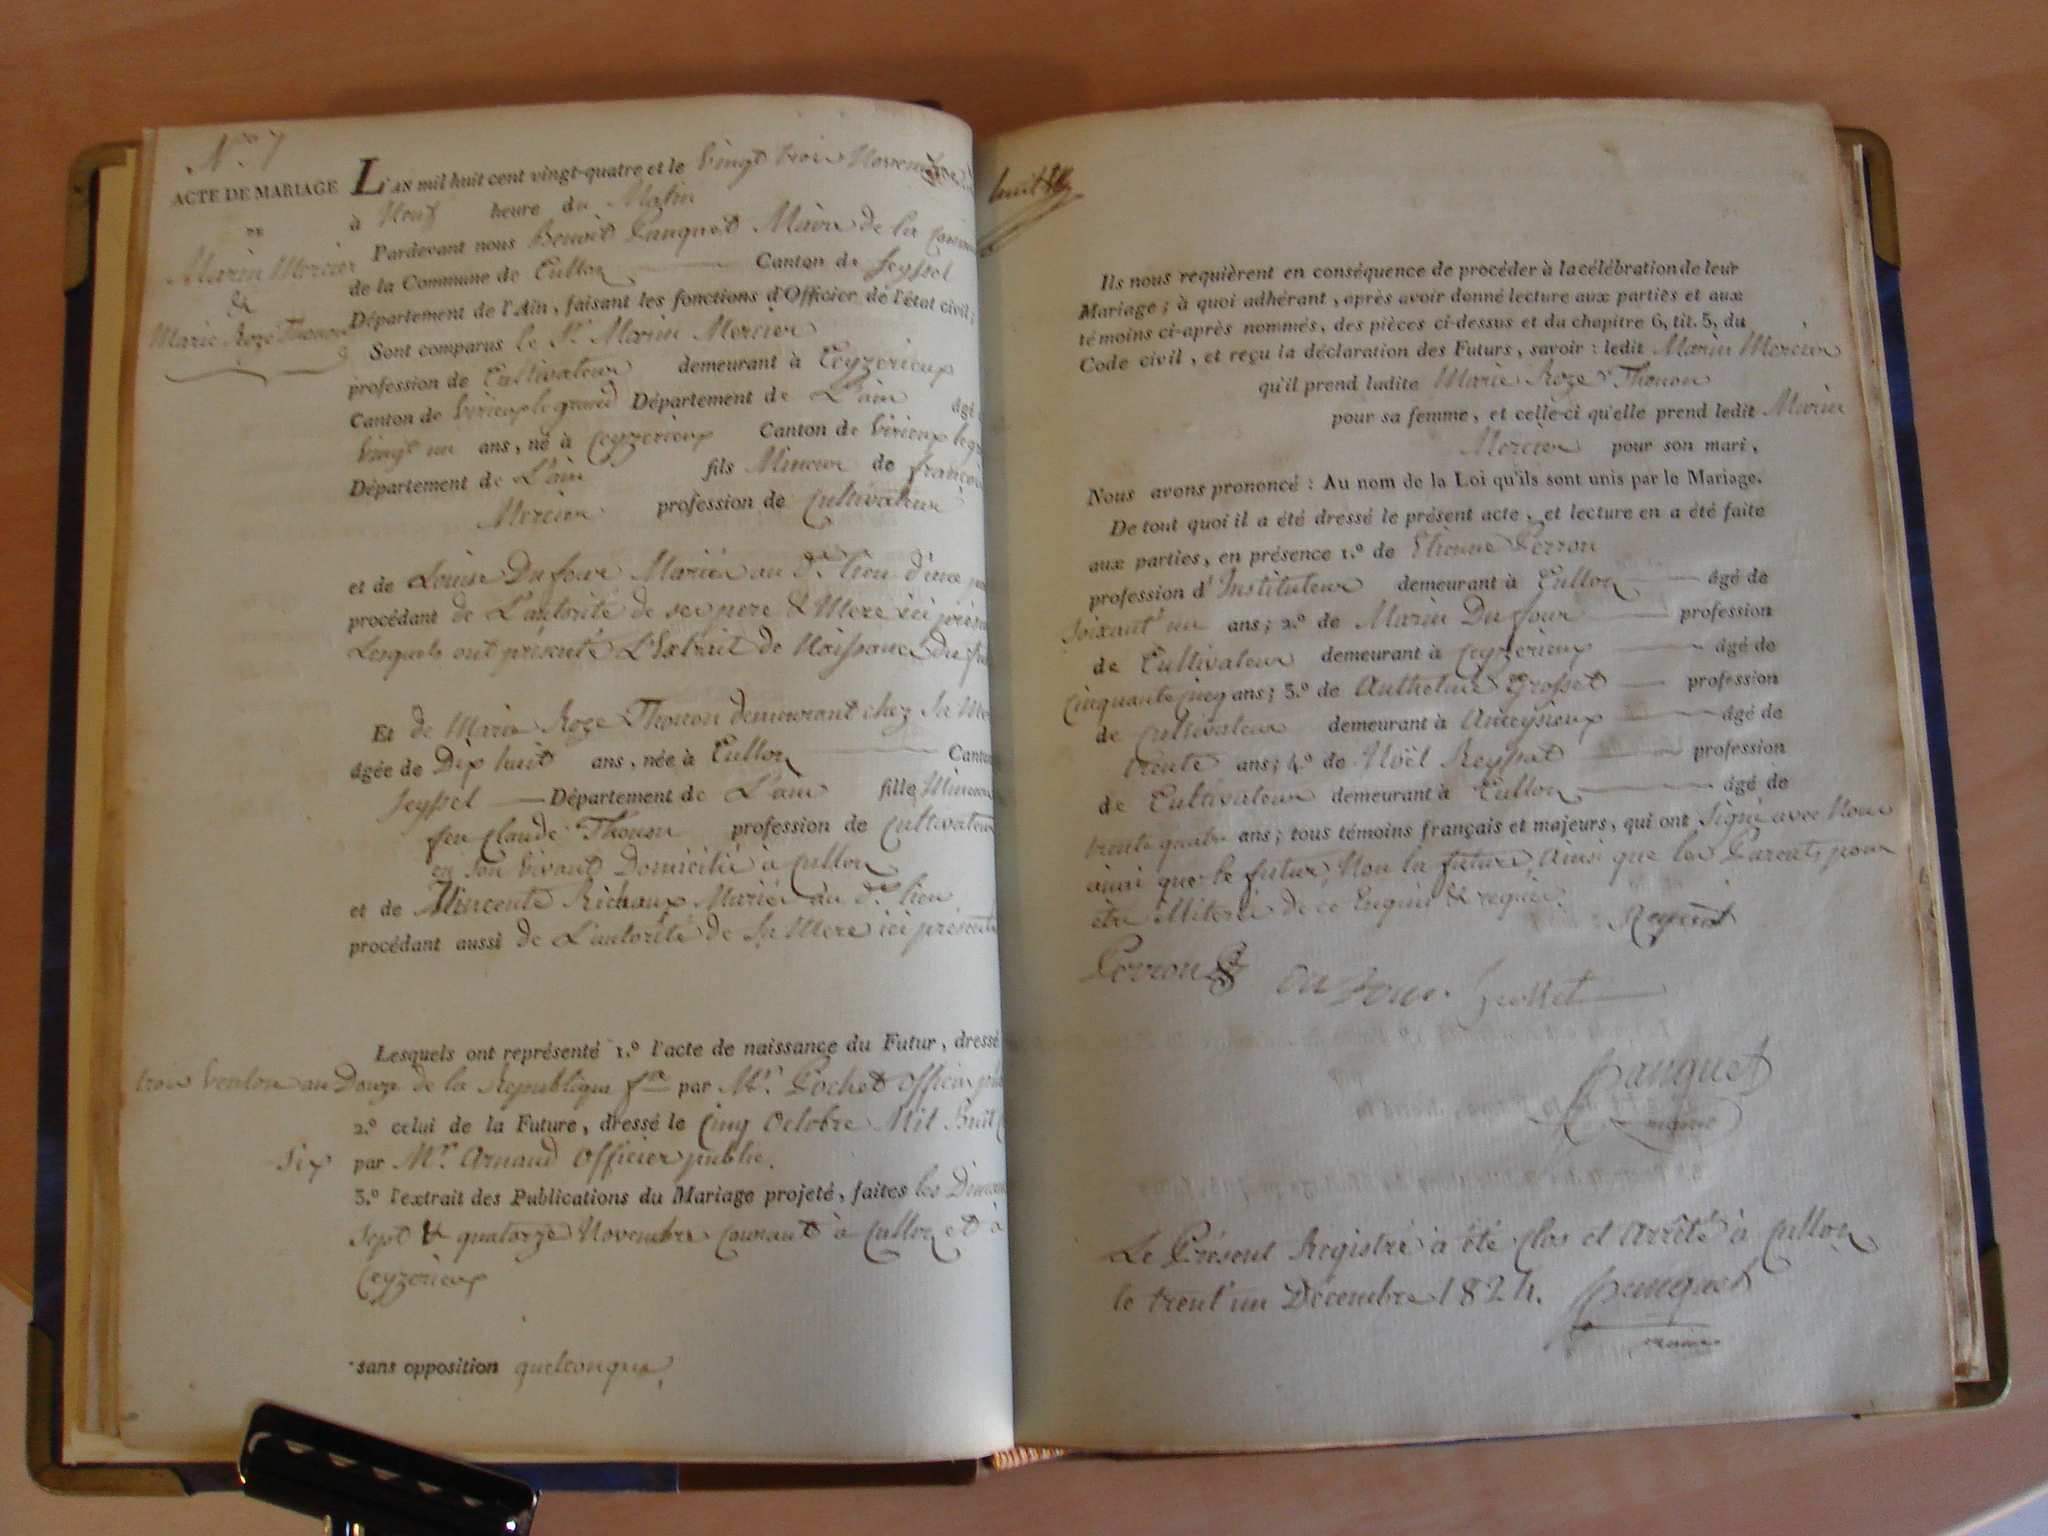 N.º 7
ACTE DE MARIAGE
DE
Marin Mercier
&
Marie Roze Thonon
L'AN mil huit cent vingt-quatre et le vingt trois Novembre
à Neuf heure du Matin
Pardevant nous Benoit Pauquet Maire de la
de la Commune de Culloz Canton de Seyssel
Département de l'Ain, faisant les fonctions d'Officier de l'état civil;
Sont comparus le Sr. Marin Mercier
profession de Cultivateur demeurant à Ceyzerieux
Canton de virieux le grand Département de L'ain âgé
vingt un ans, né à Ceyzerieux Canton de virieux le
Département de L'ain fils Mineur de françois
Mercier profession de Cultivateur
et de Louise Dufour Mariés au dt. lieu d'une
procédant de L'autorité de ses pere & Mere ici
Lesquels ont présenté L'Extrait de Naissance du
Et de Marie Roze Thonon demeurant chez Sa Mere
âgée de Dix huit ans, née à Culloz Canton
Seyssel Département de L'ain fille Mineure
feu Claude Thonon profession de Cultivateur
en son vivant Domicilié à Culloz
et de Vincente Richaux Mariés au dt. lieu
procédant aussi de L'autorité de Sa Mere ici présente
Lesquels ont représenté 1.º l'acte de naissance du Futur, dressé
trois ventose an Douze de la République fse par Mr. Pochet officier
2.º celui de la Future, dressé le Cinq Octobre Mil Huit
Six par Mr. Arnaud officier public.
3.º l'extrait des Publications du Mariage projeté, faites les
Sept & quatorze Novembre Courant à Culloz et à
Ceyzerieux
sans opposition quelconque.
huit
Ils nous requièrent en conséquence de procéder à la célébration de leur
Mariage; à quoi adhérant, après avoir donné lecture aux parties et aux
témoins ci-après nommés, des pièces ci-dessus et du chapitre 6, tit. 5, du
Code civil, et reçu la déclaration des Futurs, savoir: ledit Marin Mercier
qu'il prend ladite Marie Roze Thonon
pour sa femme, et celle-ci qu'elle prend ledit Marin
Mercier pour son mari,
Nous avons prononcé: Au nom de la Loi qu'ils sont unis par le Mariage.
De tout quoi il a été dressé le présent acte, et lecture en a été faite
aux parties, en présence 1.º de Etienne Perron
profession d'Instituteur demeurant à Culloz âgé de
soixant'un ans; 2.º de Marin Dufour profession
de Cultivateur demeurant à Ceyzerieux âgé de
Cinquante cinq ans; 3.º de Anthelme Grosset profession
de Cultivateur demeurant à Ameysieux âgé de
trente ans; 4.º de Noël Reyssat profession
de Cultivateur demeurant à Culloz âgé de
trente quatre ans; tous témoins français et majeurs, qui ont Signé avec Nous
ainsi que le futur, Non la future, Ainsi que les Parents, pour
être illiteré de ce Enquis & requis.
Perron dufour Grosset
Pauquet
maire
Le Présent Registre à été Clos et Arrêté à Culloz
le trent'un Décembre 1824. Pauquet
maire